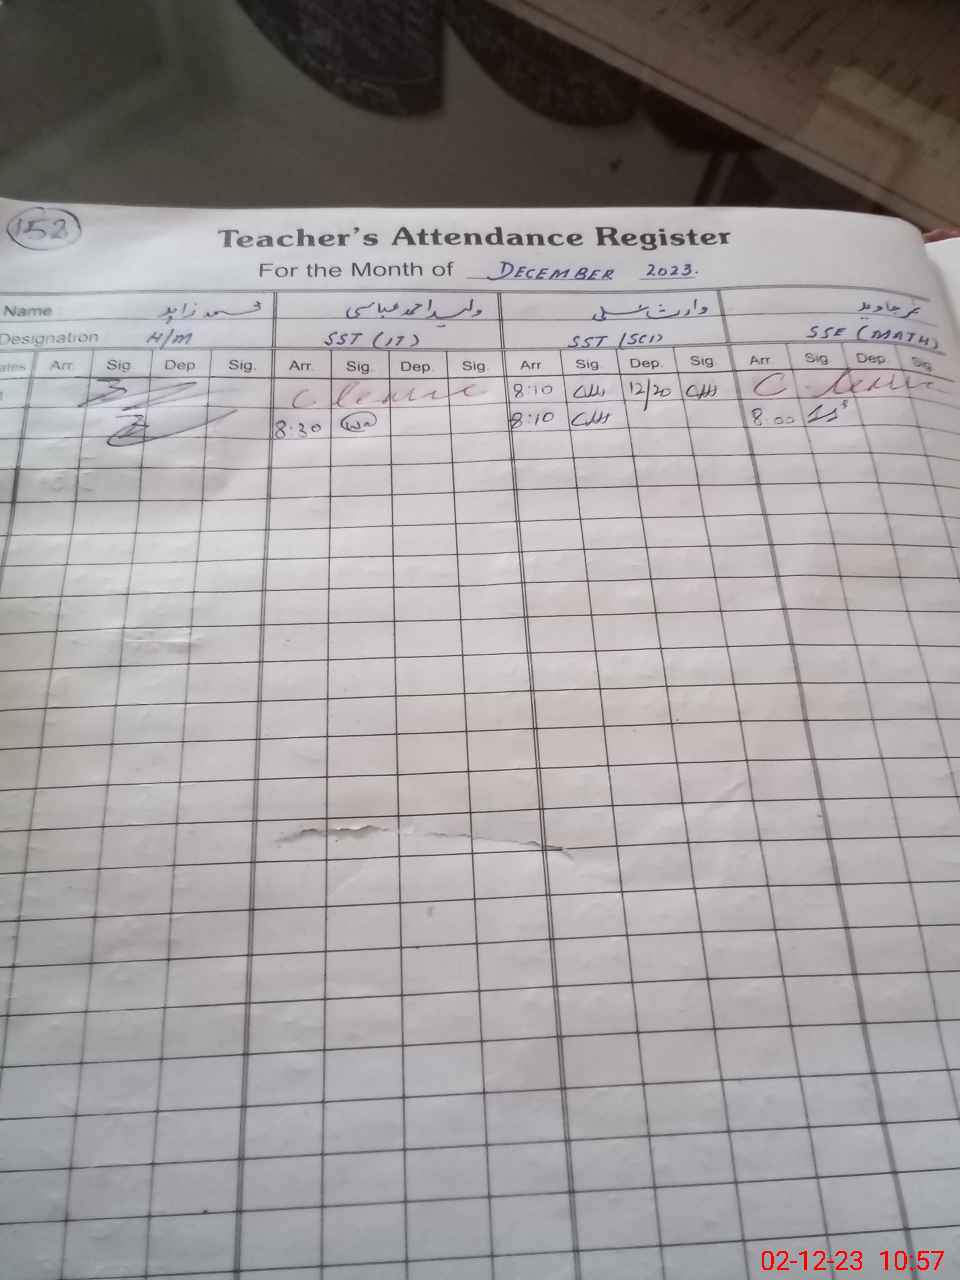 152
Teacher's Attendance Register
For the Month of DECEMBER 2023.
Name محمد زاہد ولید احمد عباسی وارث علی عمر جاوید
Designation H/M SST (IT) SST (SCI) SSE (MATH)
ates Arr. Sig. Dep. Sig. Arr. Sig. Dep. Sig. Arr. Sig. Dep. Sig. Arr. Sig. Dep. Sig.
8:10 12/20
8:30 8:10 8:00
02-12-23 10:57